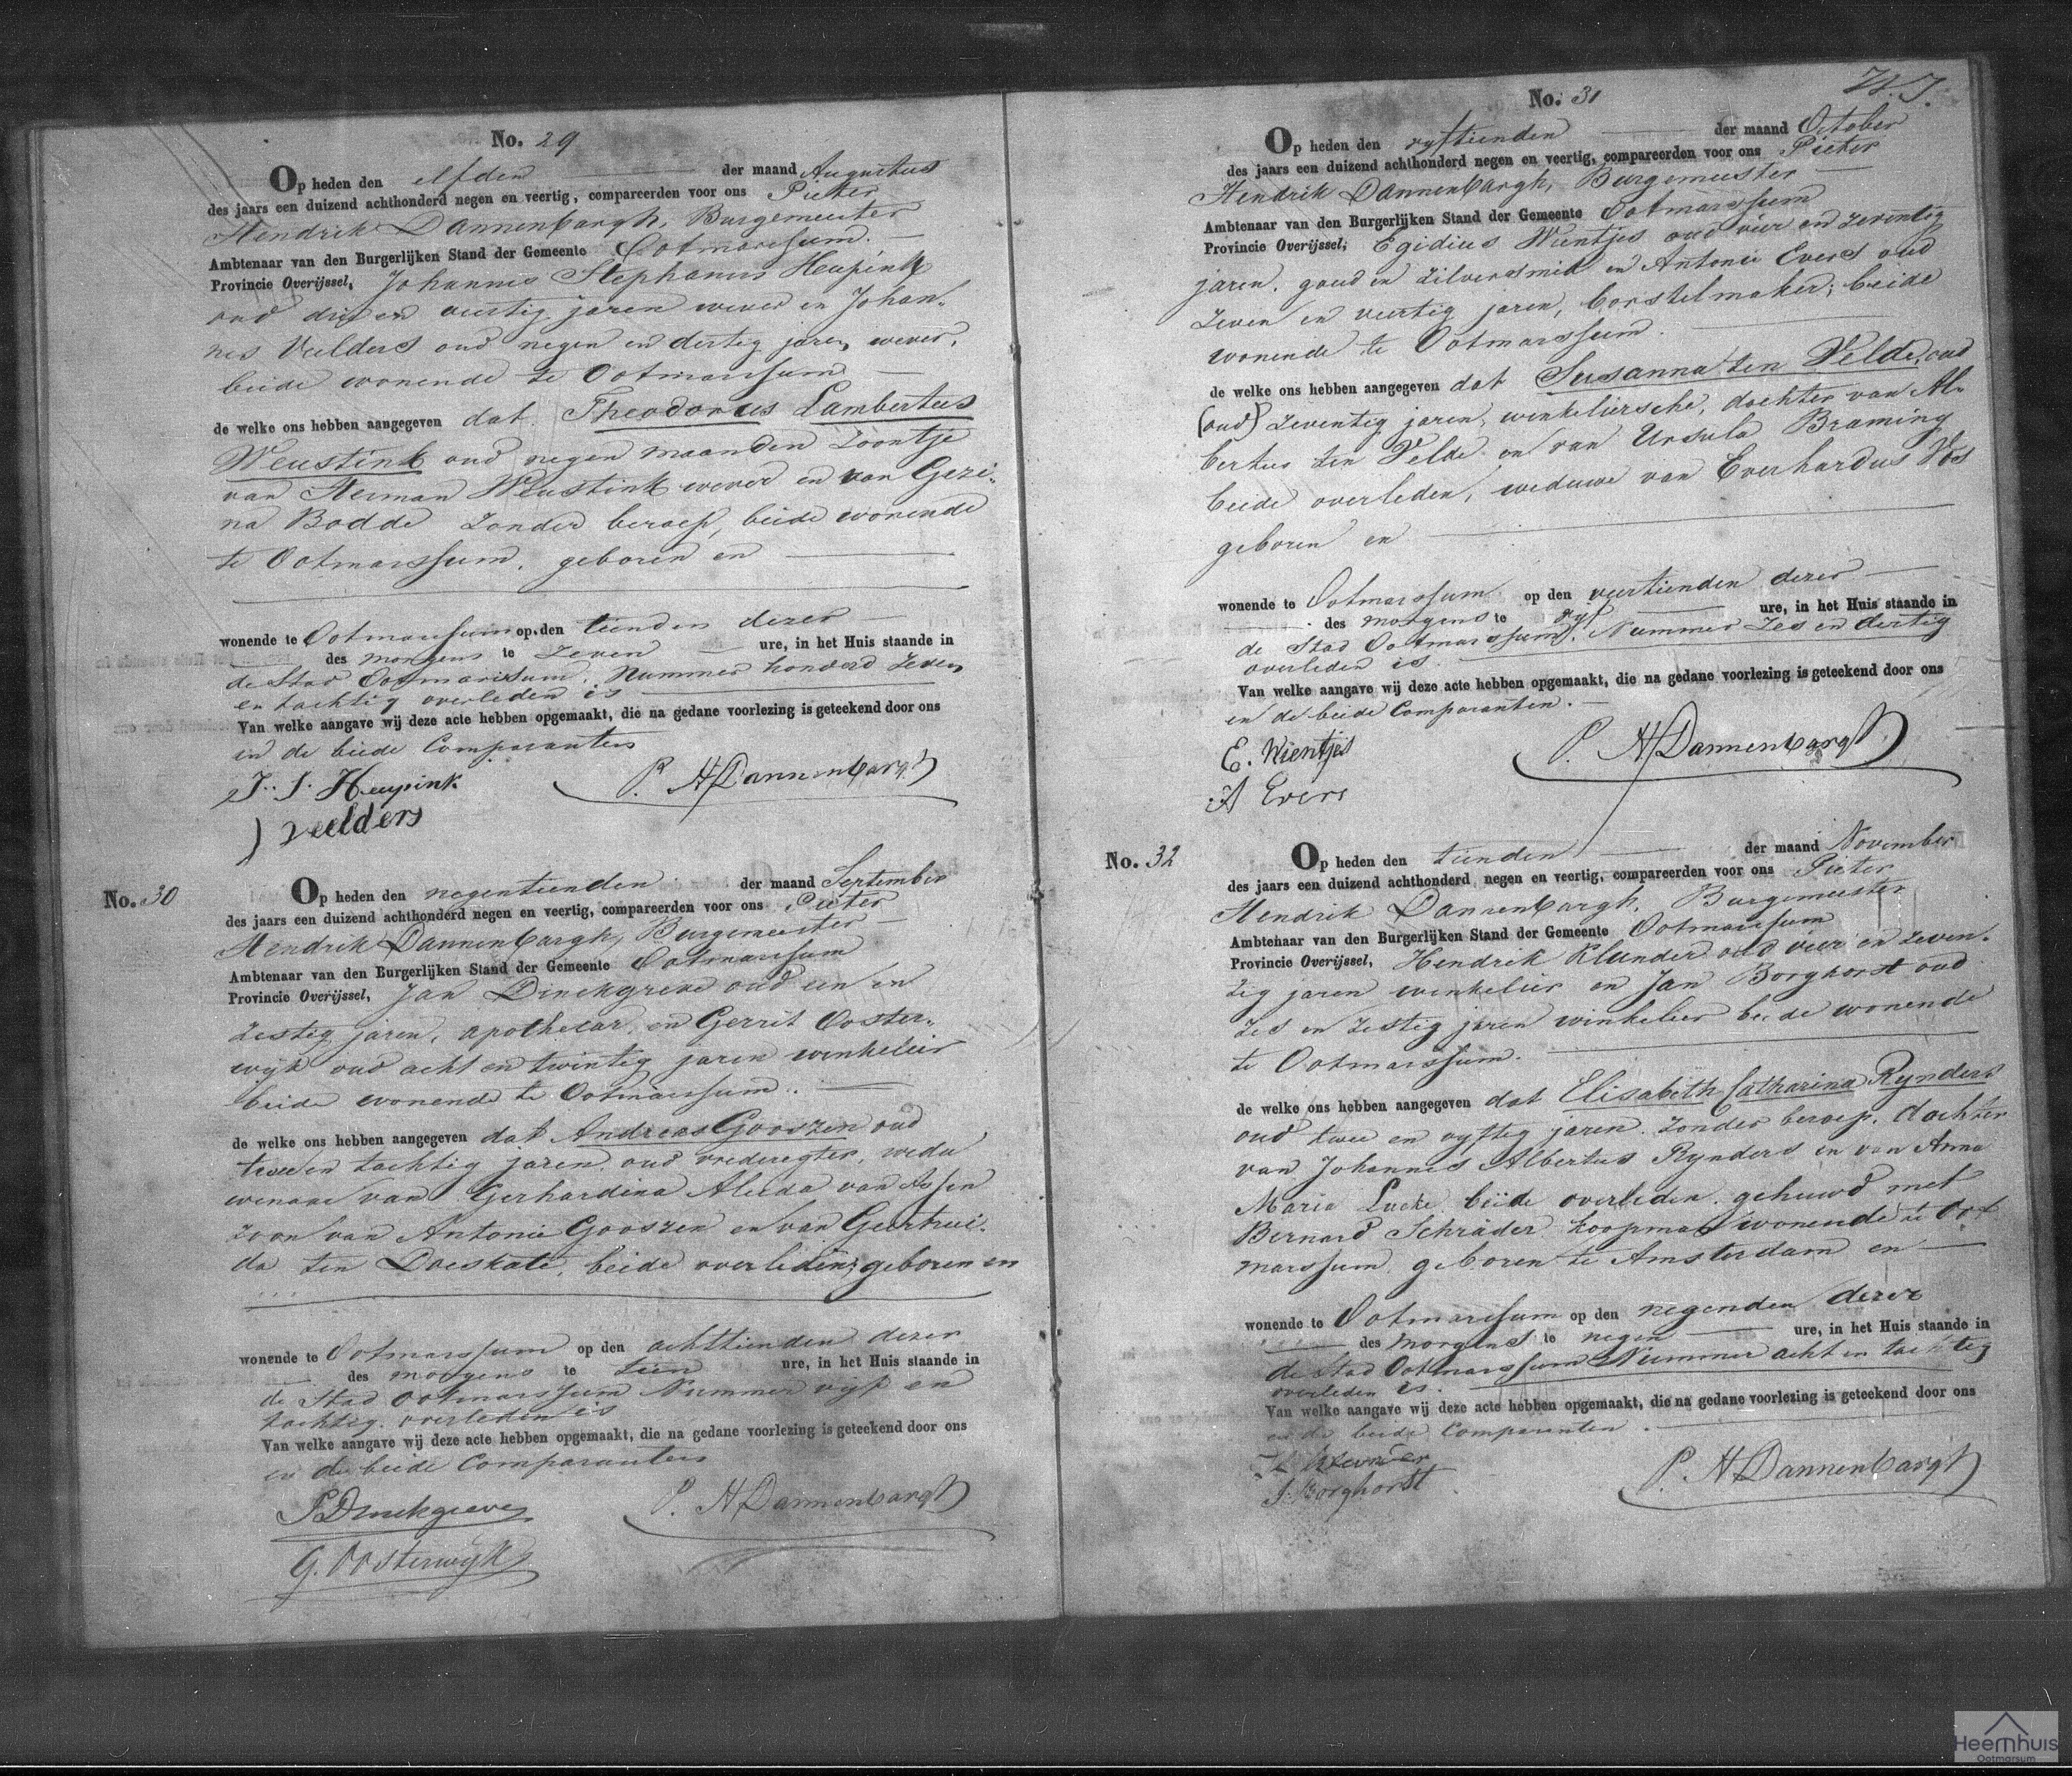 No. 29
Op heden den elfden der maand Augustus
des jaars een duizend achthonderd negen en veertig, compareerden voor ons Pieter
Hendrik Dannenbargh, Burgemeester
Ambtenaar van den Burgerlijken Stand der Gemeente Ootmarssum.
Provincie Overijssel, Johannes Stephanus Heupink
oud drie en veertig jaren wever en Johan-
nes Veelders oud negen en dertig jaren, wever,
beide wonende te Ootmarssum
de welke ons hebben aangegeven dat Theodorus Lambertus
Weustink oud negen maanden zoontje
van Herman Weustink wever en van Gezi-
na Bodde zonder beroep, beide wonende
te Ootmarssum, geboren en
wonende te Ootmarssum op den tienden dezer
des morgens te zeven ure, in het Huis staande in
de Stad Ootmarssum, Nummer honderd zeven
en tachtig overleden is
Van welke aangave wij deze acte hebben opgemaakt, die na gedane voorlezing is geteekend door ons
en de beide Comparanten
J. S. Heupink P. H Dannenbargh
J Veelders
No. 30
Op heden den negentienden der maand September
des jaars een duizend achthonderd negen en veertig, compareerden voor ons Pieter
Hendrik Dannenbargh, Burgemeester
Ambtenaar van den Burgerlijken Stand der Gemeente Ootmarssum
Provincie Overijssel, Jan Dinckgreve oud een en
zestig jaren, apothecar, en Gerrit Ooster-
wijk oud acht en twintig jaren winkelier
beide wonende te Ootmarssum.
de welke ons hebben aangegeven dat Andreas Gooszen oud
twee en tachtig jaren, oud vrederegter, wedu
wenaar van Gerhardina Aleida van Assen
zoon van Antonie Gooszen en van Geertrui-
da ten Doeskate, beide overleden, geboren en
wonende te Ootmarssum op den achttienden dezer
des morgens te tien ure, in het Huis staande in
de Stad Ootmarssum Nummer vijf en
tachtig overleden is
Van welke aangave wij deze acte hebben opgemaakt, die na gedane voorlezing is geteekend door ons
en de beide Comparanten
Dinckgreve P. H Dannenbargh
G. Oosterwijk
No. 31
Op heden den vyftienden der maand October
des jaars een duizend achthonderd negen en veertig, compareerden voor ons Pieter
Hendrik Dannenbargh, Burgemeester
Ambtenaar van den Burgerlijken Stand der Gemeente Ootmarssum
Provincie Overijssel, Egidius Wientjes oud vier en zeventig
jaren, goud en zilversmid en Antonie Evers oud
zeven en veertig jaren, borstelmaker, beide
wonende te Ootmarssum.
de welke ons hebben aangegeven dat Susanna ten Velde, oud
(oud) zeventig jaren, winkeliersche, dochter van Al-
bertus ten Velde en van Ursula Braming
beide overleden, weduwe van Everhardus Vos
geboren en
wonende te Ootmarssum op den veertienden dezer
des morgens te vyf ure, in het Huis staande in
de Stad Ootmarssum, Nummer Zes en dertig
overleden is.
Van welke aangave wij deze acte hebben opgemaakt, die na gedane voorlezing is geteekend door ons
en de beide Comparanten.
E. Wientjes P. H Dannenbargh
A Evers
No. 32
Op heden den tienden der maand November
des jaars een duizend achthonderd negen en veertig, compareerden voor ons Pieter
Hendrik Dannenbargh, Burgemeester
Ambtenaar van den Burgerlijken Stand der Gemeente Ootmarssum
Provincie Overijssel, Hendrik Klunder oud vier en zeven-
tig jaren winkelier en Jan Borghorst oud
zes en zestig jaren winkelier beide wonende
te Ootmarssum.
de welke ons hebben aangegeven dat Elisabeth Catharina Rynders
oud twee en vyftig jaren, zonder beroep, dochter
van Johannes Albertus Rynders en van Anna
Maria Lucke beide overleden, gehuwd met
Bernard Schräder koopman wonende te Oot
marssum, geboren te Amsterdam en
wonende te Ootmarssum op den negenden dezer
des morgens te negen ure, in het Huis staande in
de Stad Ootmarssum Nummer acht en tachtig
overleden is.
Van welke aangave wij deze acte hebben opgemaakt, die na gedane voorlezing is geteekend door ons
en de beide Comparanten.
P. H Dannenbargh
J. Borghorst
Heemhuis
Ootmarsum